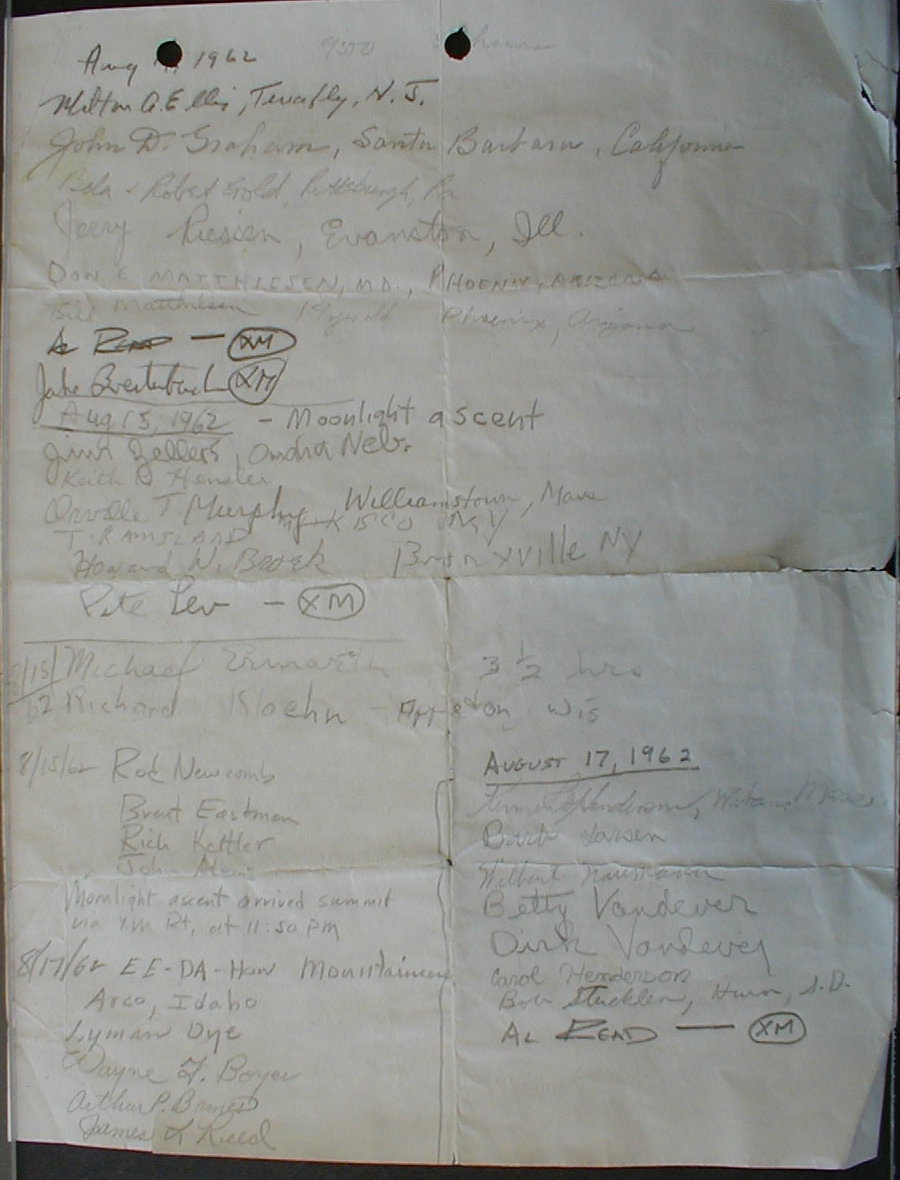 Aug 1962
Milton A. Ellis, Tenafly, N.J.
John D. Graham, Santa Barbara, California
Bela + Robert Gold, Pittsburgh, Pa
Jerry Evanston, Ill.
DON E MATTHIESEN, M.D., PHOENIX, ARIZONA
Bill Matthiesen Phoenix, Arizona
AL READ — XM
Jake Breitenbach XM
Aug 15, 1962 - Moonlight ascent
Jim Zellers, Omaha Neb.
Keith D
Orville T. Murphy Williamstown, Mass
T. RAMSLAND Mt KISCO NY
Howard N. Brock Bronxville NY
Pete Lev — XM
8/15/62 Michael Ermarth 3 1/2 hrs
Richard Kloehn - Appleton Wis
8/15/62 Rod Newcomb
Brent Eastman
Rich Kettler
John
Moonlight ascent arrived summit
via XM Rt, at 11:50 PM
8/17/62 EE-DA-How Mountaineers
Arco, Idaho
Lyman Dye
Wayne F. Boyer
Arthur P. Barnes
James L Reed
AUGUST 17, 1962
Kenneth Henderson,
Barb Larsen
Wilbert Naumann
Betty Vandever
Dirk Vandever
Carol Henderson
Bob Stucklen, Huron, S.D.
AL READ — XM